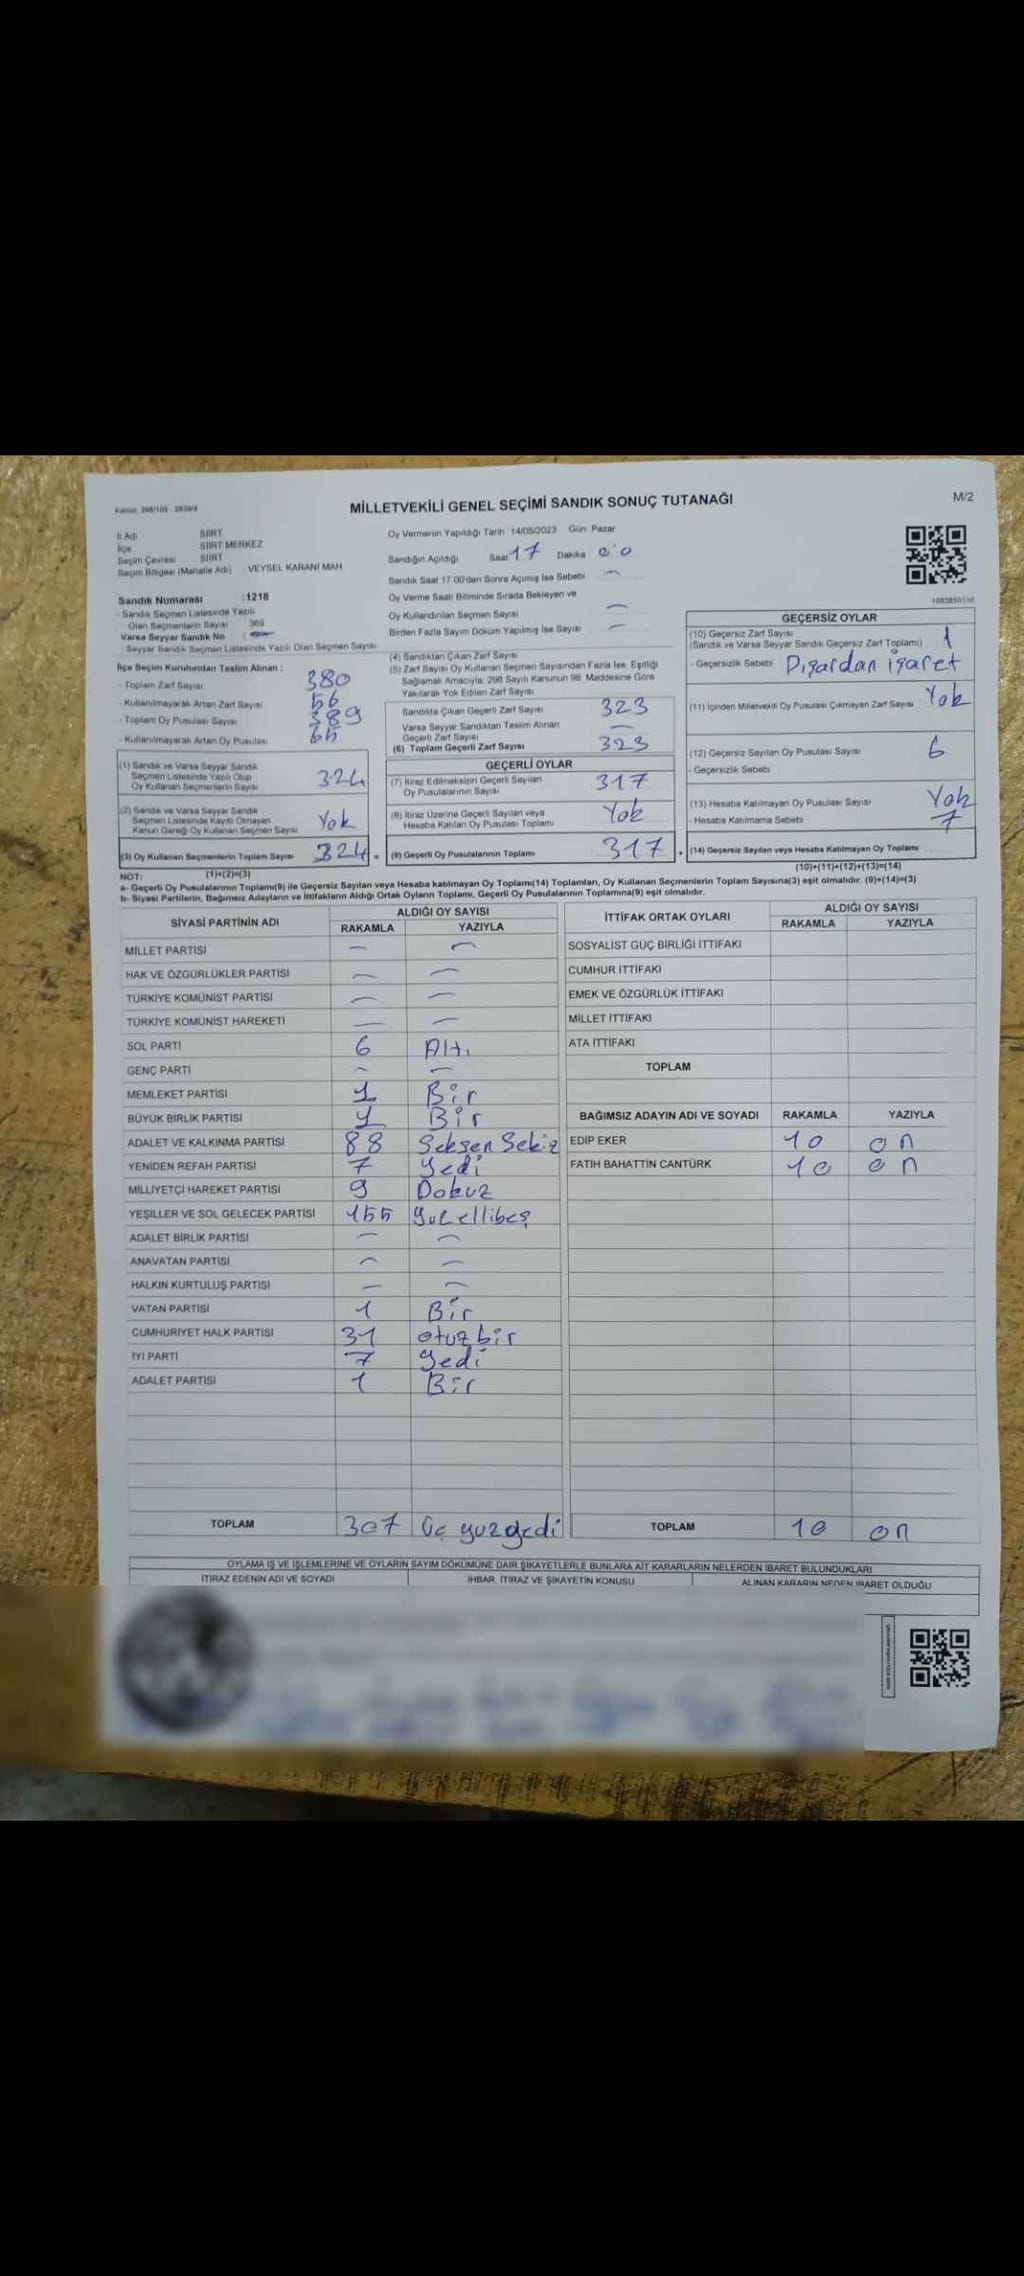 Kanun: 298/105 - 2839/4
MİLLETVEKİLİ GENEL SEÇİMİ SANDIK SONUÇ TUTANAĞI
M/2
İl Adı SİİRT
İlçe SİİRT MERKEZ
Seçim Çevresi SİİRT
Seçim Bölgesi (Mahalle Adı) VEYSEL KARANİ MAH
Sandık Numarası :1218
- Sandık Seçmen Listesinde Yazılı
Olan Seçmenlerin Sayısı 369
Varsa Seyyar Sandık No :
- Seyyar Sandık Seçmen Listesinde Yazılı Olan Seçmen Sayısı
İlçe Seçim Kurulundan Teslim Alınan :
- Toplam Zarf Sayısı 380
- Kullanılmayarak Artan Zarf Sayısı 56
- Toplam Oy Pusulası Sayısı 389
- Kullanılmayarak Artan Oy Pusulası 65
(1) Sandık ve Varsa Seyyar Sandık
Seçmen Listesinde Yazılı Olup
Oy Kullanan Seçmenlerin Sayısı 324
(2) Sandık ve Varsa Seyyar Sandık
Seçmen Listesinde Kayıtlı Olmayan
Kanun Gereği Oy Kullanan Seçmen Sayısı Yok
(3) Oy Kullanan Seçmenlerin Toplam Sayısı 324 =
(1)+(2)=(3)
Oy Vermenin Yapıldığı Tarih 14/05/2023 Gün: Pazar
Sandığın Açıldığı Saat 17 Dakika 00
Sandık Saat 17.00'den Sonra Açılmış İse Sebebi —
Oy Verme Saati Bitiminde Sırada Bekleyen ve
Oy Kullandırılan Seçmen Sayısı —
Birden Fazla Sayım Döküm Yapılmış İse Sayısı —
(4) Sandıktan Çıkan Zarf Sayısı
(5) Zarf Sayısı Oy Kullanan Seçmen Sayısından Fazla İse, Eşitliği
Sağlamak Amacıyla, 298 Sayılı Kanunun 98. Maddesine Göre
Yakılarak Yok Edilen Zarf Sayısı
Sandıkta Çıkan Geçerli Zarf Sayısı 323
Varsa Seyyar Sandıktan Teslim Alınan
Geçerli Zarf Sayısı —
(6) Toplam Geçerli Zarf Sayısı 323
GEÇERLİ OYLAR
(7) İtiraz Edilmeksizin Geçerli Sayılan
Oy Pusulalarının Sayısı 317
(8) İtiraz Üzerine Geçerli Sayılan veya
Hesaba Katılan Oy Pusulası Toplamı Yok
(9) Geçerli Oy Pusulalarının Toplamı 317 +
GEÇERSİZ OYLAR
(10) Geçersiz Zarf Sayısı
(Sandık ve Varsa Seyyar Sandık Geçersiz Zarf Toplamı) 1
- Geçersizlik Sebebi Dışardan işaret
(11) İçinden Milletvekili Oy Pusulası Çıkmayan Zarf Sayısı Yok
(12) Geçersiz Sayılan Oy Pusulası Sayısı 6
- Geçersizlik Sebebi
(13) Hesaba Katılmayan Oy Pusulası Sayısı Yok
- Hesaba Katılmama Sebebi
7
(14) Geçersiz Sayılan veya Hesaba Katılmayan Oy Toplamı
(10)+(11)+(12)+(13)=(14)
NOT:
a- Geçerli Oy Pusulalarının Toplamı(9) ile Geçersiz Sayılan veya Hesaba katılmayan Oy Toplamı(14) Toplamları, Oy Kullanan Seçmenlerin Toplam Sayısına(3) eşit olmalıdır. (9)+(14)=(3)
b- Siyasi Partilerin, Bağımsız Adayların ve İttifakların Aldığı Ortak Oyların Toplamı, Geçerli Oy Pusulalarının Toplamına(9) eşit olmalıdır.
SİYASİ PARTİNİN ADI ALDIĞI OY SAYISI
RAKAMLA YAZIYLA
MİLLET PARTİSİ — —
HAK VE ÖZGÜRLÜKLER PARTİSİ — —
TÜRKİYE KOMÜNİST PARTİSİ — —
TÜRKİYE KOMÜNİST HAREKETİ — —
SOL PARTİ 6 Altı
GENÇ PARTİ — —
MEMLEKET PARTİSİ 1 Bir
BÜYÜK BİRLİK PARTİSİ 1 Bir
ADALET VE KALKINMA PARTİSİ 88 Seksen Sekiz
YENİDEN REFAH PARTİSİ 7 Yedi
MİLLİYETÇİ HAREKET PARTİSİ 9 Dokuz
YEŞİLLER VE SOL GELECEK PARTİSİ 155 Yüzellibeş
ADALET BİRLİK PARTİSİ — —
ANAVATAN PARTİSİ — —
HALKIN KURTULUŞ PARTİSİ — —
VATAN PARTİSİ 1 Bir
CUMHURİYET HALK PARTİSİ 31 otuzbir
İYİ PARTİ 7 Yedi
ADALET PARTİSİ 1 Bir
TOPLAM 307 Üç yüzyedi
İTTİFAK ORTAK OYLARI ALDIĞI OY SAYISI
RAKAMLA YAZIYLA
SOSYALİST GÜÇ BİRLİĞİ İTTİFAKI
CUMHUR İTTİFAKI
EMEK VE ÖZGÜRLÜK İTTİFAKI
MİLLET İTTİFAKI
ATA İTTİFAKI
TOPLAM
BAĞIMSIZ ADAYIN ADI VE SOYADI RAKAMLA YAZIYLA
EDİP EKER 10 on
FATİH BAHATTİN CANTÜRK 10 on
TOPLAM 10 on
OYLAMA İŞ VE İŞLEMLERİNE VE OYLARIN SAYIM DÖKÜMÜNE DAİR ŞİKAYETLERLE BUNLARA AİT KARARLARIN NELERDEN İBARET BULUNDUKLARI
İTİRAZ EDENİN ADI VE SOYADI İHBAR, İTİRAZ VE ŞİKAYETİN KONUSU ALINAN KARARIN NEDEN İBARET OLDUĞU